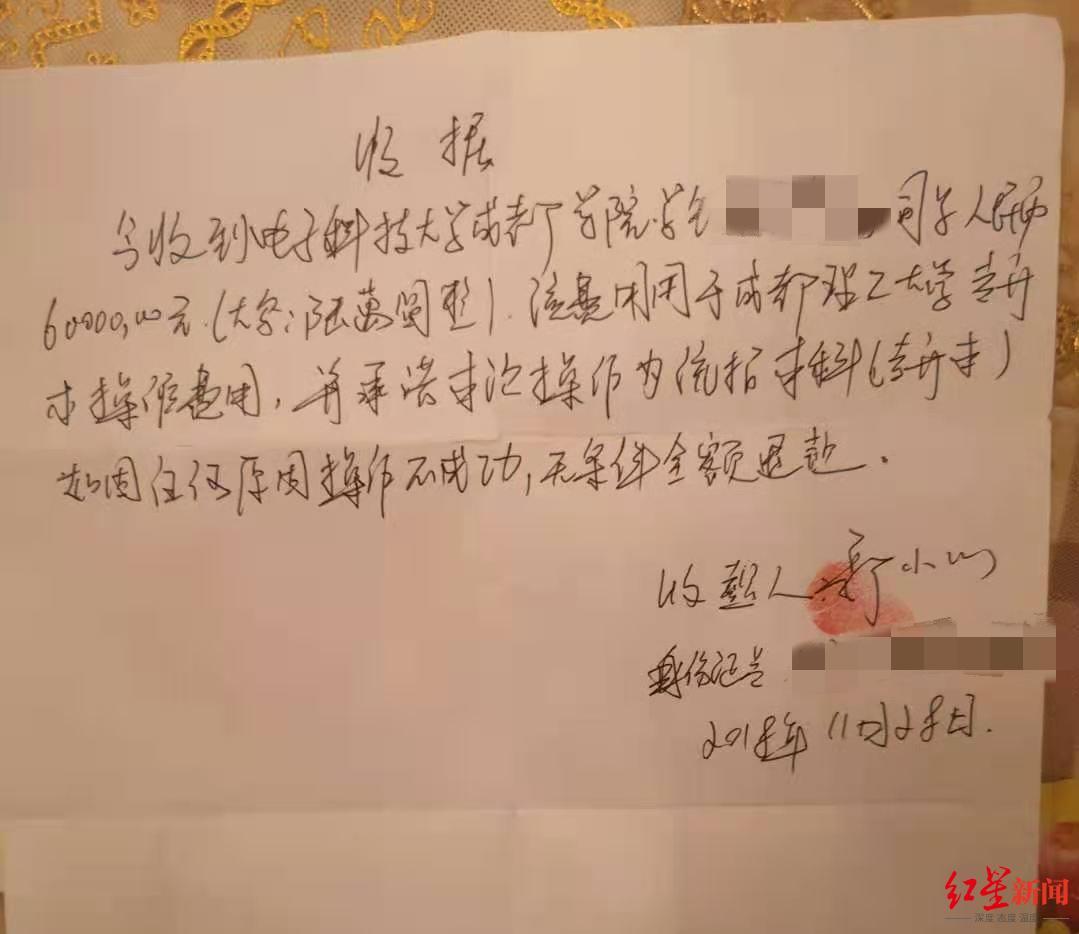 收据
今收到电子科技大学成都学院学生 同学人民币
60000.00元.(大写:陆萬圆整).该费用用于成都理工大学专升
本操作费用,并承诺本次操作为统招本科(专升本)
如因任何原因操作不成功,无条件全额退款.
收款人 小
身份证号
2018年11月28日.
红星新闻
深度 态度 温度